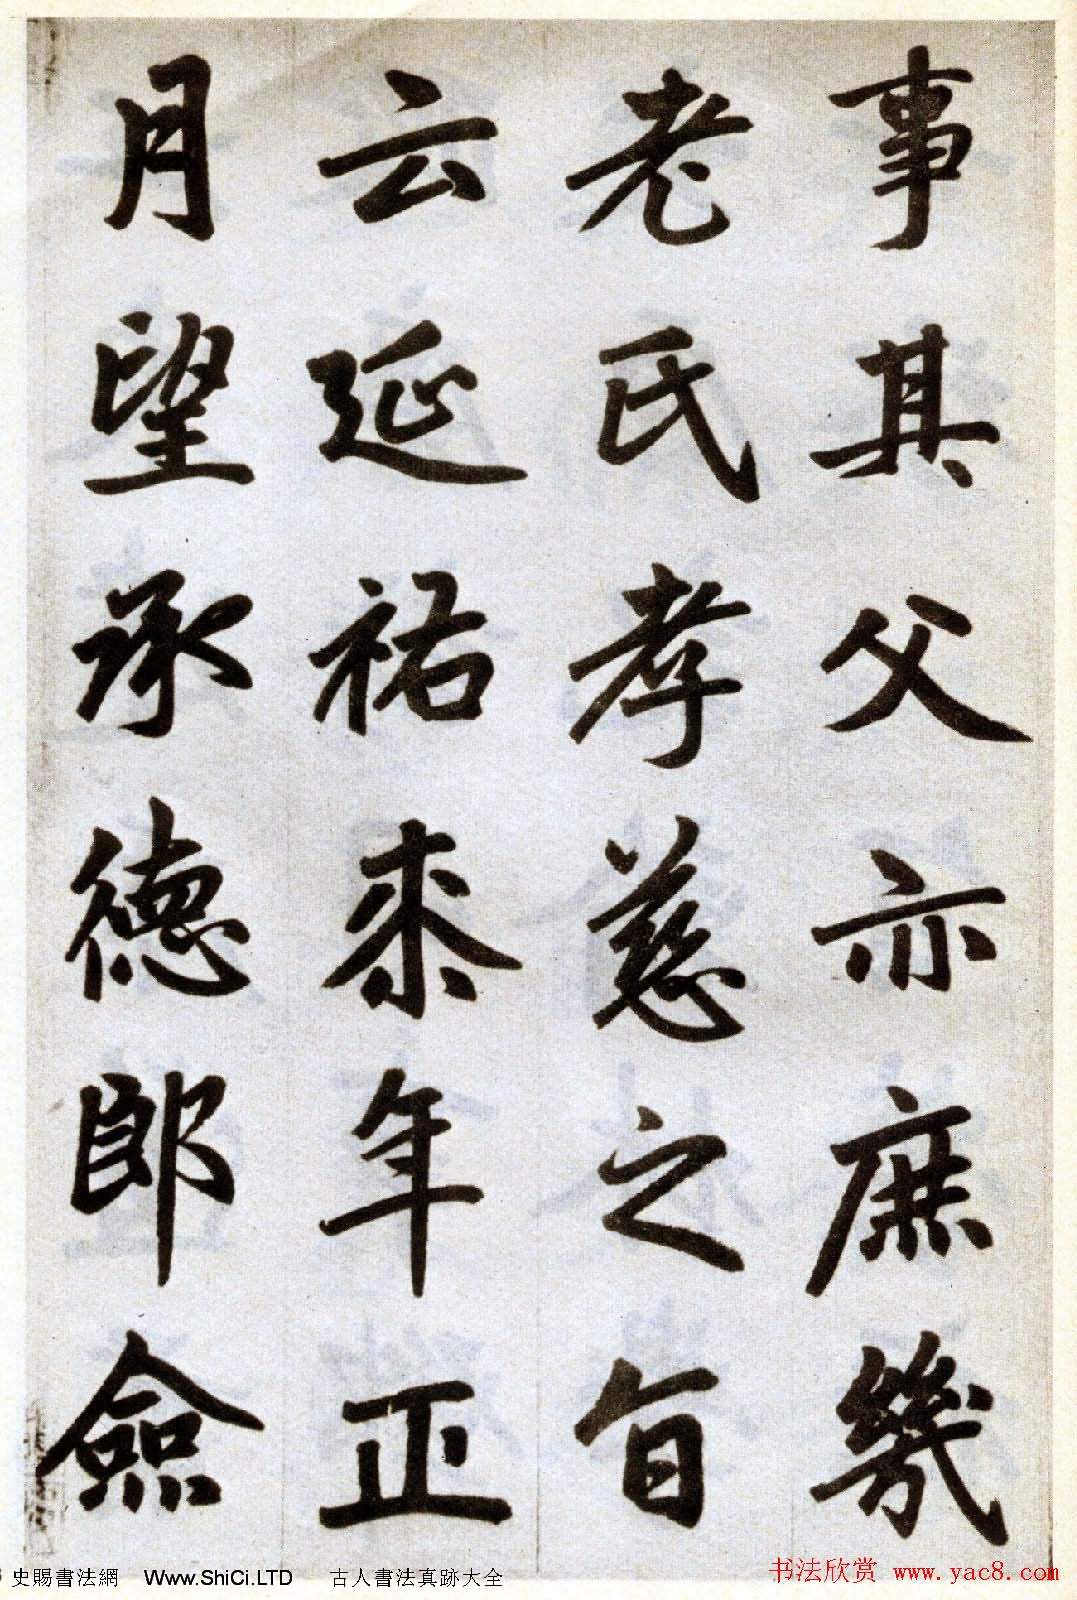 事其父亦庶幾
老氏孝慈之旨
云延祐來年正
月望承德郎僉
史賜書法網 Www.ShiCi.LTD 古人書法真跡大全
书法欣赏 www.yac8.com